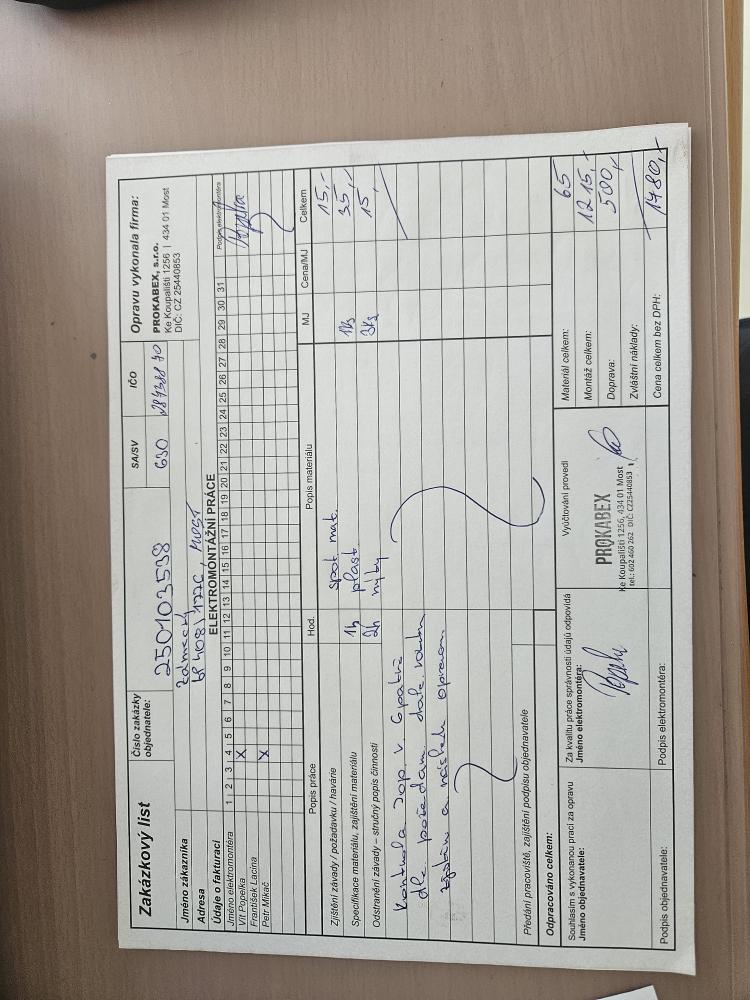 Zakázkový list
Číslo zakázky objednatele: 250103538
SA/SV 630
IČO 28438870
Opravu vykonala firma:
PROKABEX, s.r.o.
Ke Koupališti 1256 | 434 01 Most
DIČ: CZ 25440853
Jméno zákazníka
Adresa bl 408/1776, MOST
Údaje o fakturaci
ELEKTROMONTÁŽNÍ PRÁCE
Jméno elektromontéra 1 2 3 4 5 6 7 8 9 10 11 12 13 14 15 16 17 18 19 20 21 22 23 24 25 26 27 28 29 30 31 Podpis elektromontéra
Vít Popelka X
František Lacina
Petr Mikáč X
Popis práce Hod. Popis materiálu MJ Cena/MJ Celkem
Zjištění závady / požadavku / havárie spot. mat. 15,-
Specifikace materiálu, zajištění materiálu 1h plast 1ks 35,-
Odstranění závady – stručný popis činnosti 2h nýty 3ks 15,-
Kontrola zop. v 6 patře
dle požadav.
a následn oprava
Předání pracoviště, zajištění podpisu objednavatele
Odpracováno celkem:
Souhlasím s vykonanou prací za opravu
Jméno objednavatele:
Za kvalitu práce správnosti údajů odpovídá
Jméno elektromontéra:
Vyúčtování provedl
PROKABEX
Ke Koupališti 1256, 434 01 Most
tel.: 602 460 262 DIČ: CZ25440853
Materiál celkem: 65
Montáž celkem: 1215,-
Doprava: 500,-
Zvláštní náklady:
Podpis objednavatele:
Podpis elektromontéra:
Cena celkem bez DPH: 1480,-